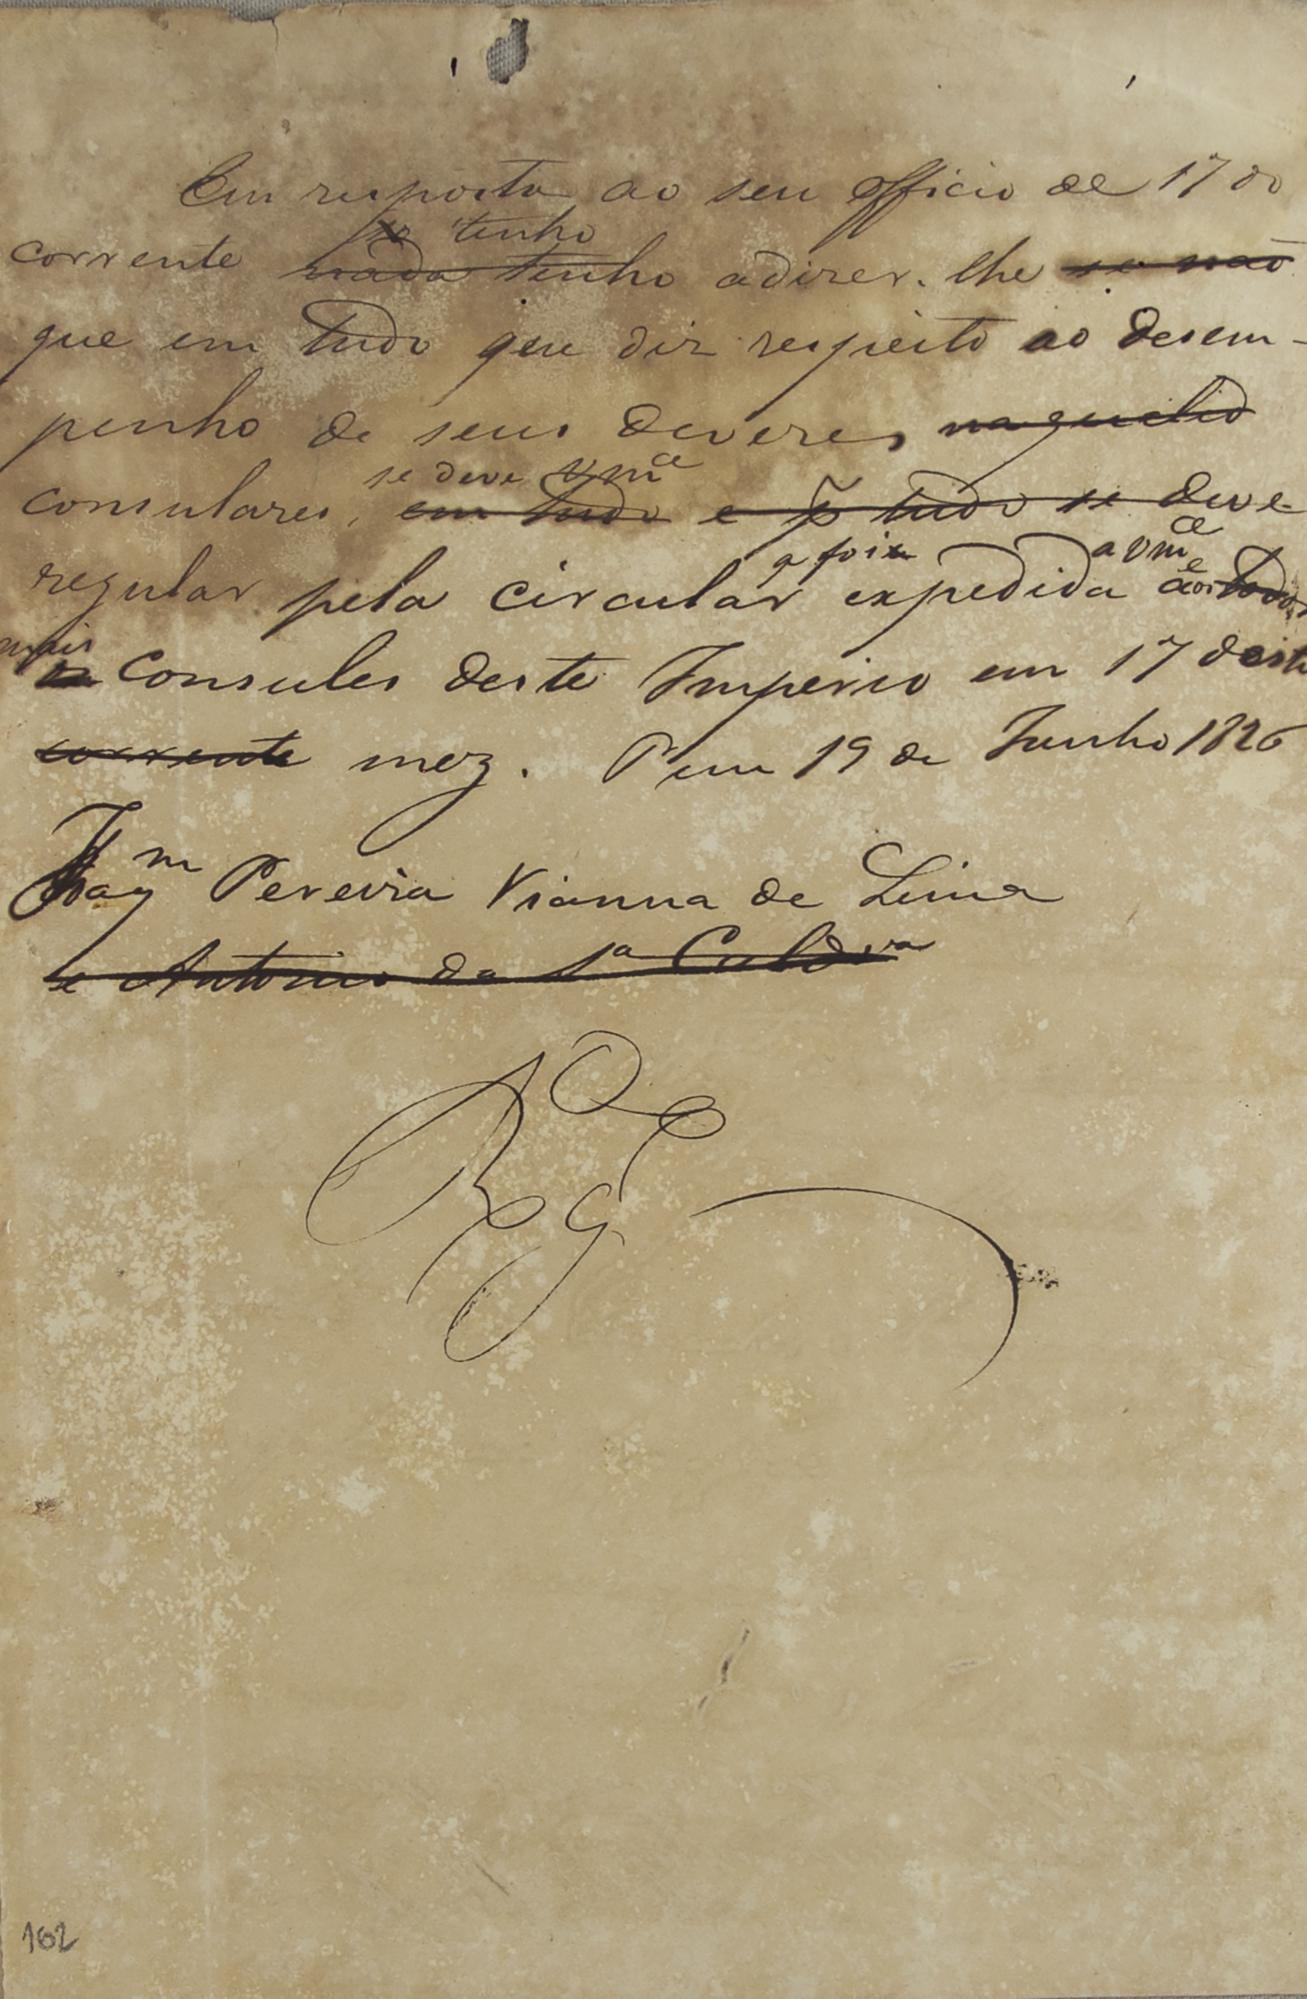 Em resposta ao seu officio de 17 do
tenho
corrente nada tenho adizer-lhe se não
que em tudo que diz respeito ao desem-
penho de seus deveres
se deve Vmce
consulares, em tudo e p tudo se deve
q foi a Vmce
regular pela circular expedida aos todos
mais
Consules deste Imperio em 17 deste
corrente mez. P em 19 de Junho 1826
Pereira Vianna de Lima
e Antonio da Sa Caldra
162